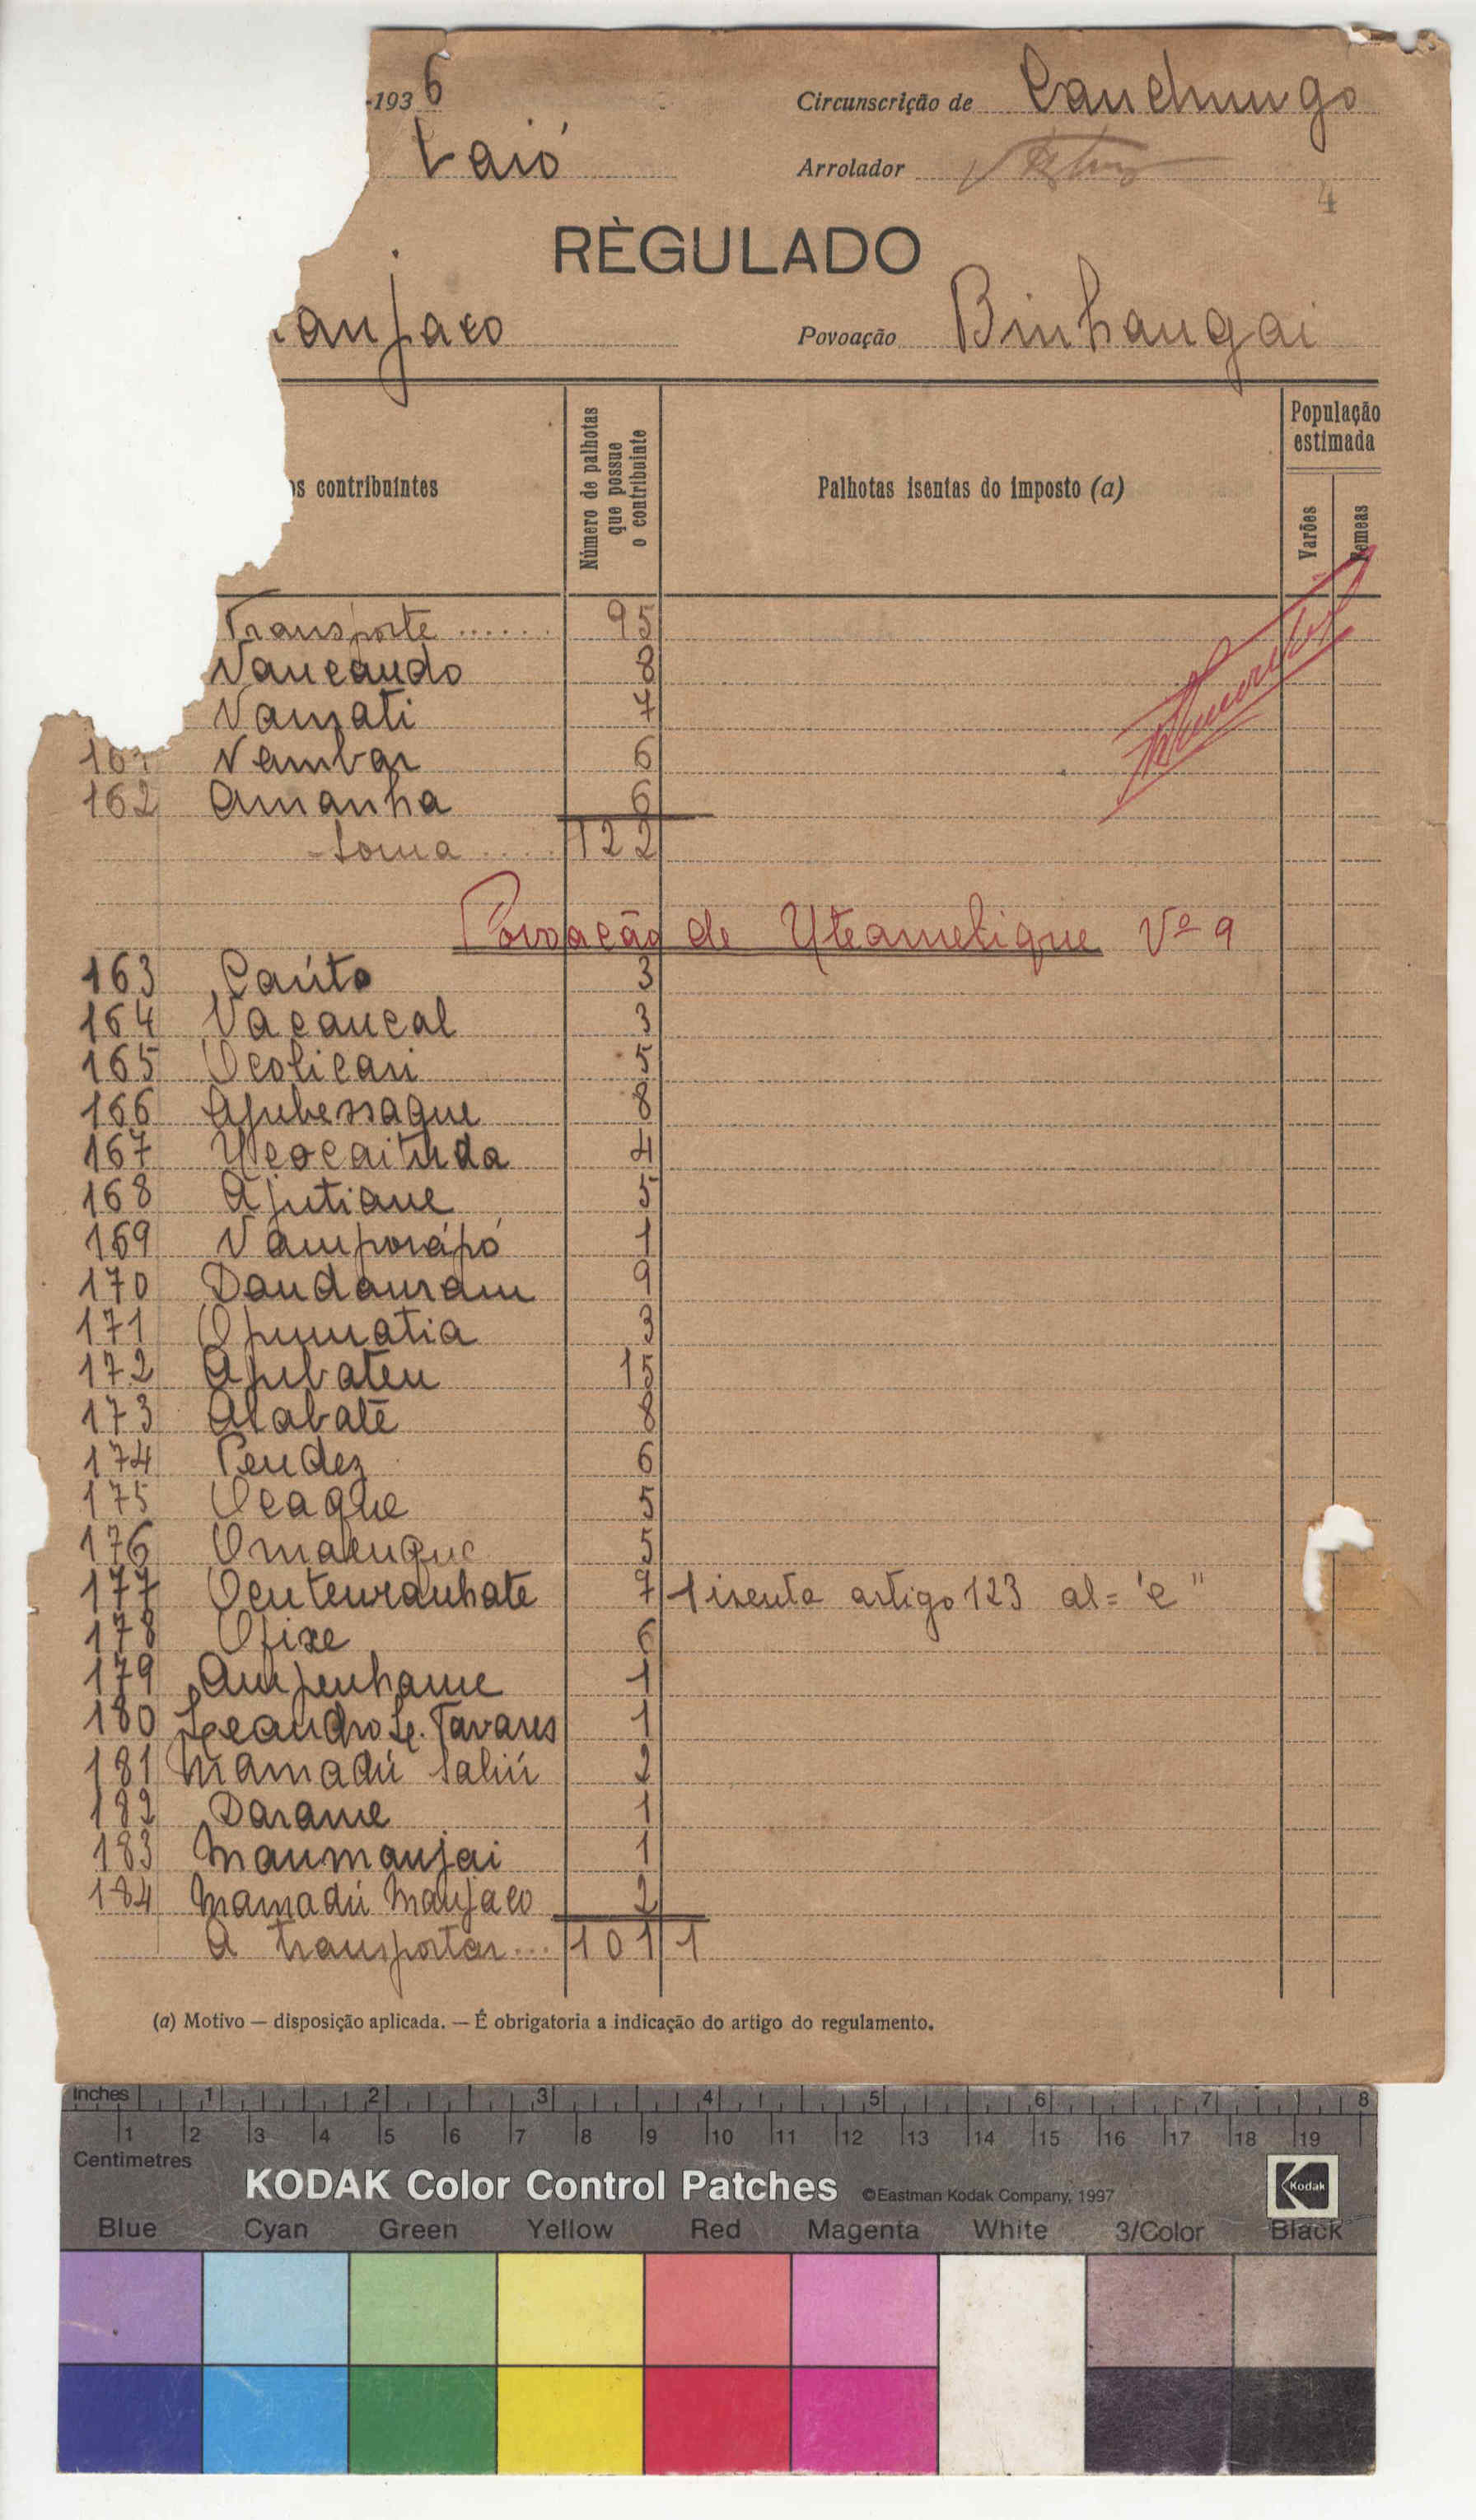 -193 6 Circunscrição de Canchungo
Caió Arrolador
4
RÈGULADO
anjaco Povoação Binhangai
os contribuintes
Número de palhotas que possue o contribuinte
Palhotas isentas do imposto (a)
População estimada
Varões Femeas
Transporte ...... 95
Vancando 8
Vamati 7
161 Nambar 6
162 Amanha 6
Soma .... 122
Povoação de Uteamelique Vº 9
163 Caúto 3
164 Vacancal 3
165 Ucolicari 5
166 Apubessaque 8
167 4
168 Ajutiane 5
169 Vamporápó 1
170 Dandauram 9
171 Opumatia 3
172 Apubateu 15
173 Alabaté 8
174 Pendez 6
175 Ucaque 5
176 5
177 7 1 isenta artigo 123 al= "e"
178 Ofixe 6
179 Ampenhame 1
180 Leandro L. Tavares 1
181 Mamadú Saliú 2
182 Darame 1
183 Maumanjai 1
184 Mamadú Manjaco 2
A transportar... 101 1
(a) Motivo — disposição aplicada. — É obrigatoria a indicação do artigo do regulamento.
Inches 1 2 3 4 5 6 7 8
1 2 3 4 5 6 7 8 9 10 11 12 13 14 15 16 17 18 19
Centimetres
KODAK Color Control Patches ©Eastman Kodak Company, 1997 Kodak
Blue Cyan Green Yellow Red Magenta White 3/Color Black